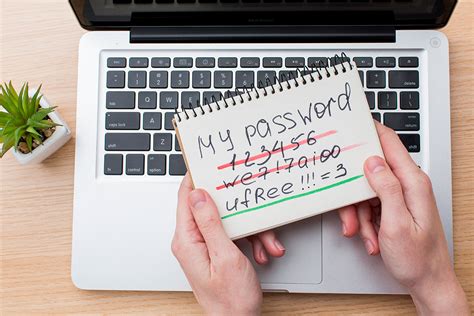 My password
123456
we7!7aioo
ufree!!!=3